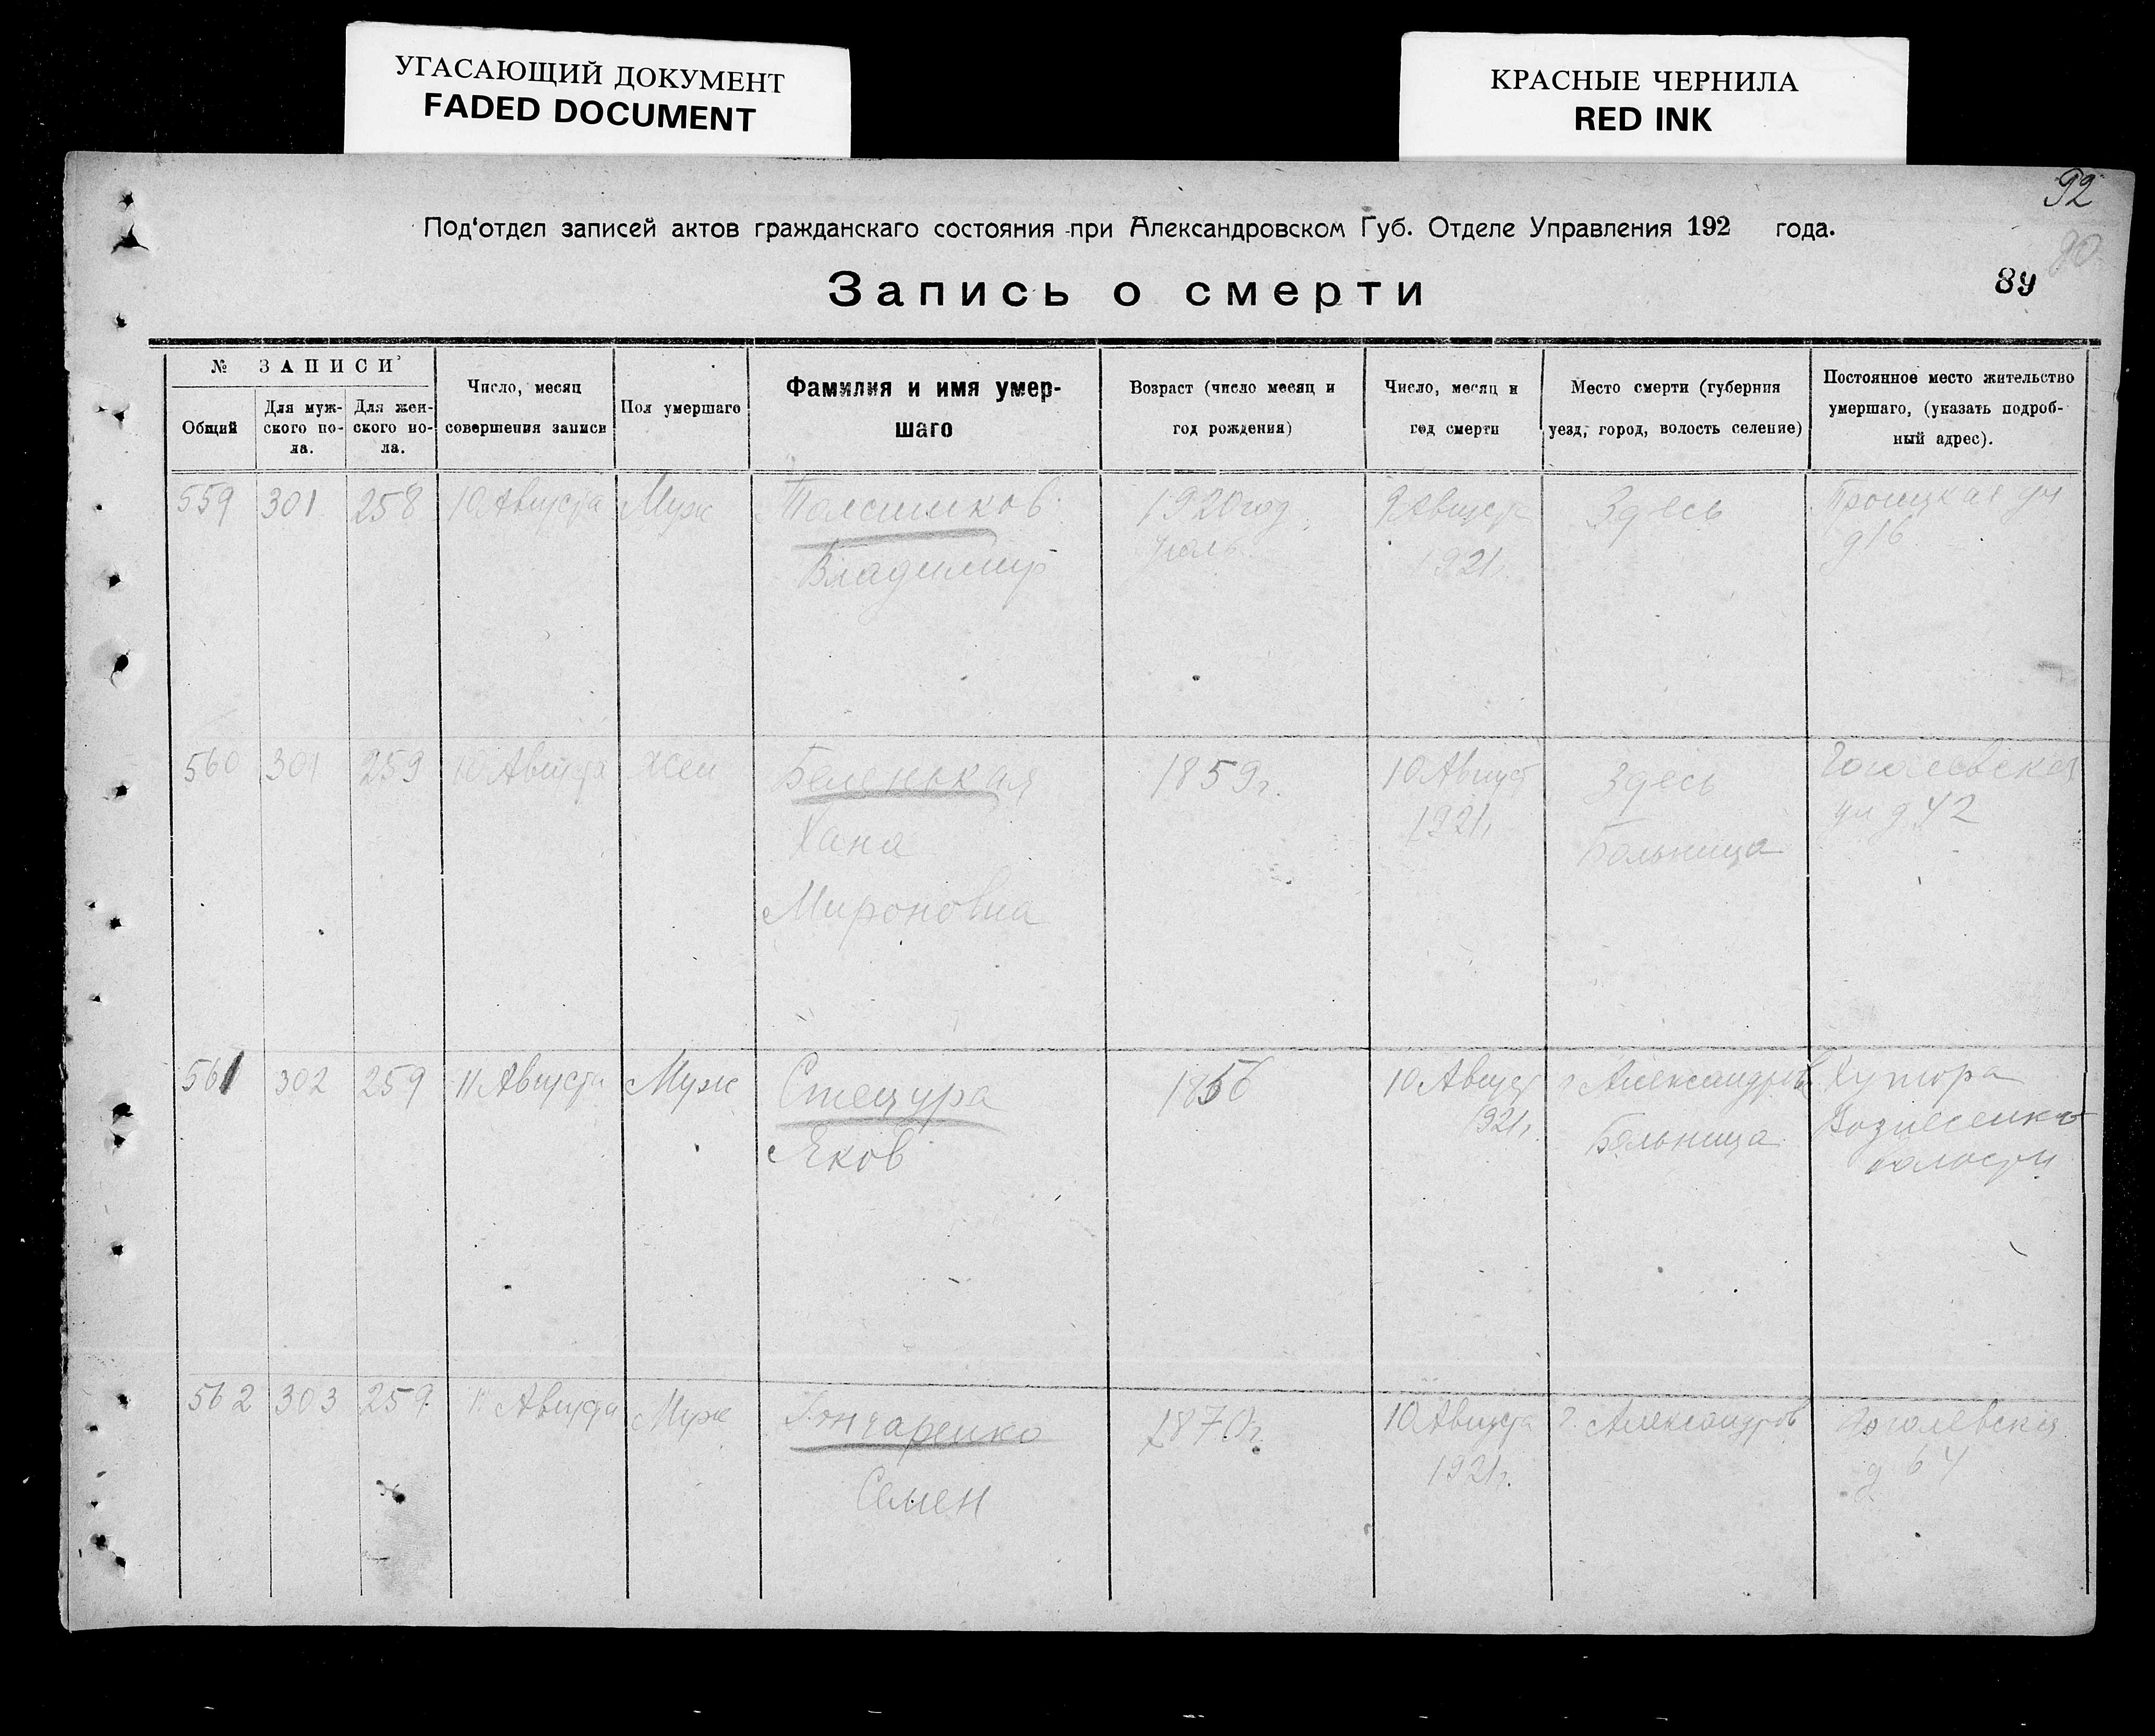 УГАСАЮЩИЙ ДОКУМЕНТ
FADED DOCUMENT
КРАСНЫЕ ЧЕРНИЛА
RED INK
92
90
89
Под‘отдел записей актов гражданскаго состояния при Александровском Губ. Отделе Управления 192 года.
Запись о смерти
№ ЗАПИСИ
Общий
Для муж-
ского по-
ла.
Для жен-
ского по-
ла.
Число, месяц
совершения записи
Пол умершаго
Фамилия и имя умер-
шаго
Возраст (число месяц и
год рождения)
Число, месяц и
год смерти
Место смерти (губерния
уезд, город, волость селение)
Постоянное место жительство
умершаго, (указать подроб-
ный адрес).
559 301 258 10 Августа Муж
Владимир
1920 год
9 Августа
1921г.
Здесь
Троицкая ул
д 16
560 301 259 10 Августа Жен
Беленькая
Хана
Мироновна
1859г.
10 Август
1921г.
Здесь
Больница
Гоголевская
ул д 42
561 302 259 11 Августа Муж
Стецура
Яков
1856
10 Август
1921г.
г Александров
Больница
Хутора
Вознесенко
волости
562 303 259 11 Августа Муж
Гончаренко
Семен
1870г.
10 Августа
1921г.
г. Александров
Гоголевская
д 64